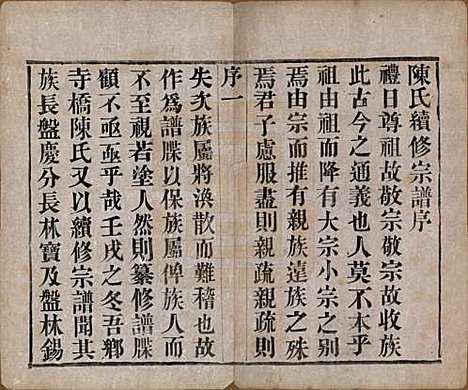 陳氏續修宗譜序
禮曰尊祖故敬宗敬宗故收族
此古今之通義也人莫不本乎
祖由祖而降有大宗小宗之殊
焉由宗而推有親族疎族之殊
焉君子慮服盡則親疏親疏則
序一
失次族屬將渙散而難稽也故
作為譜牒以保族屬俾族人而
不至視若塗人然則纂修譜牒
顧不亟亟乎哉壬戌之冬吾鄉
寺橋陳氏又以續修宗譜聞其
族長盤慶分長林寶及盤林錫